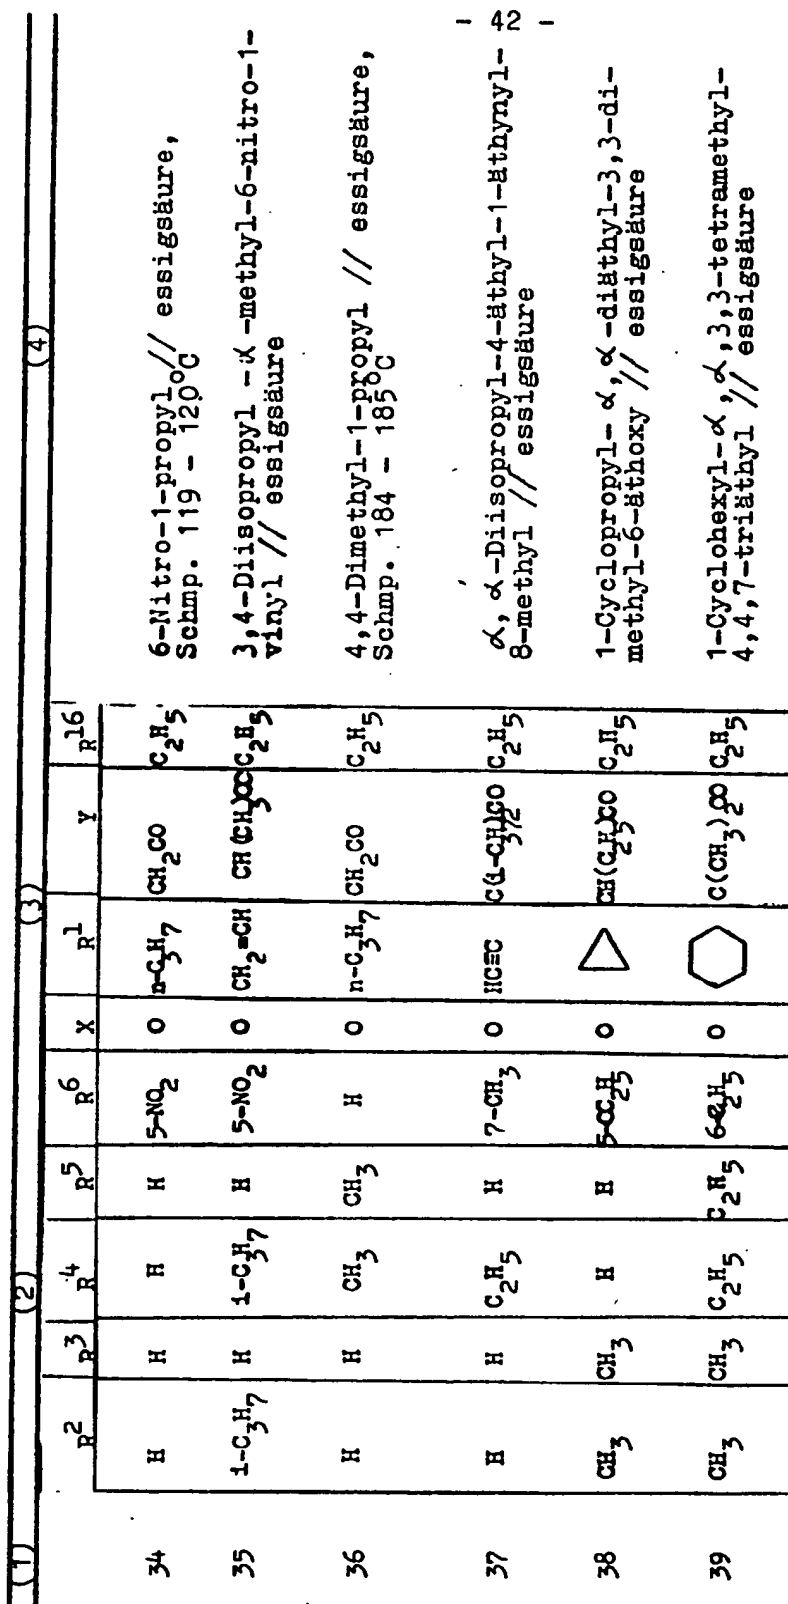 - 42 -
(1) (2) (3) (4)
R2 R3 R4 R5 R6 X R1 Y R16
34 H H H H 5-NO2 O n-C3H7 CH2CO C2H5 6-Nitro-1-propyl // essigsäure,
Schmp. 119 - 120°C
35 i-C3H7 H i-C3H7 H 5-NO2 O CH2=CH CH(CH3)CO C2H5 3,4-Diisopropyl -α-methyl-6-nitro-1-
vinyl // essigsäure
36 H H CH3 CH3 H O n-C3H7 CH2CO C2H5 4,4-Dimethyl-1-propyl // essigsäure,
Schmp. 184 - 185°C
37 H H C2H5 H 7-CH3 O HC≡C C(i-CH3)2CO C2H5 α, α-Diisopropyl-4-äthyl-1-äthynyl-
8-methyl // essigsäure
38 CH3 CH3 H H 5-OC2H5 O CH(C2H5)CO C2H5 1-Cyclopropyl- α, α-diäthyl-3,3-di-
methyl-6-äthoxy // essigsäure
39 CH3 CH3 C2H5 C2H5 6-C2H5 O C(CH3)2CO C2H5 1-Cyclohexyl-α, α,3,3-tetramethyl-
4,4,7-triäthyl // essigsäure